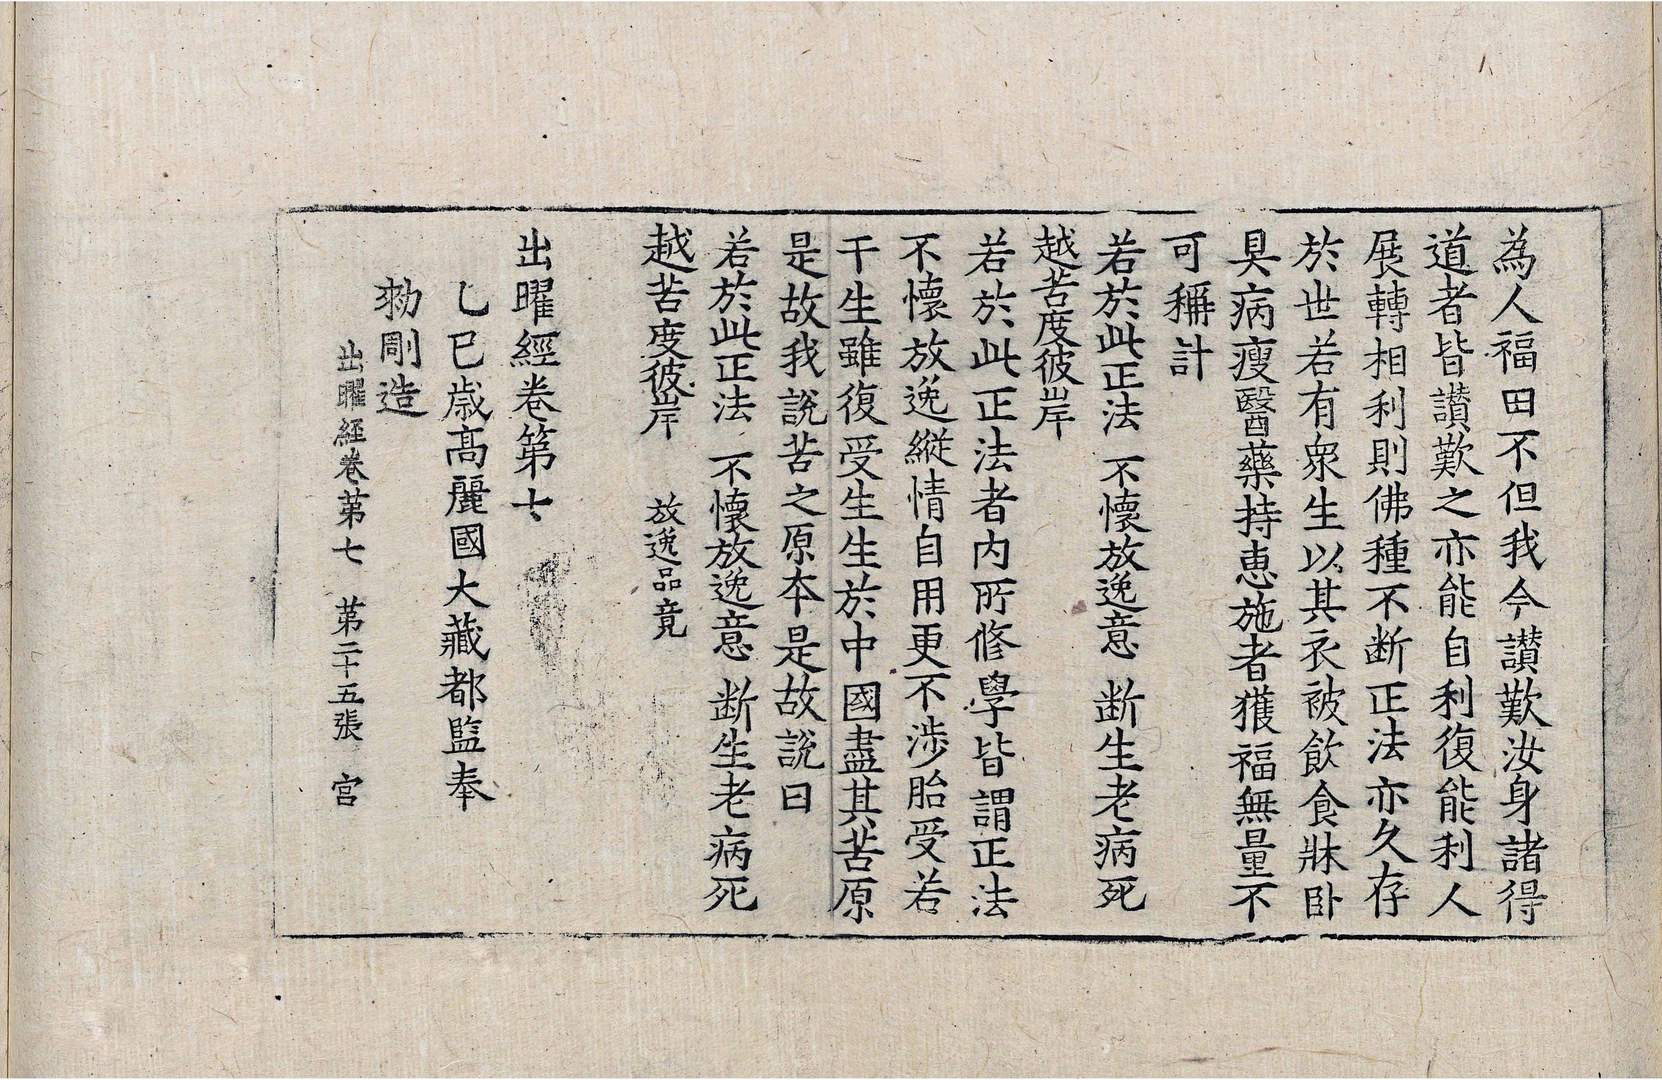 為人福田不但我今讃歎汝身諸得
道者皆讃歎之亦能自利復能利人
展轉相利則佛種不断正法亦久存
於世若有衆生以其衣被飲食牀臥
具病瘦醫藥持惠施者獲福無量不
可稱計
若於此正法 不懷放逸意 断生老病死
越苦度彼岸
若於此正法者内所修學皆謂正法
不懷放逸縦情自用更不涉胎受若
干生雖復受生生於中國盡其苦原
是故我說苦之原本是故說曰
若於此正法 不懷放逸意 断生老病死
越苦度彼岸 放逸品竟
出曜經卷第七
乙巳歳高麗國大藏都監奉
勑彫造
出曜経卷第七 第二十五張 宮